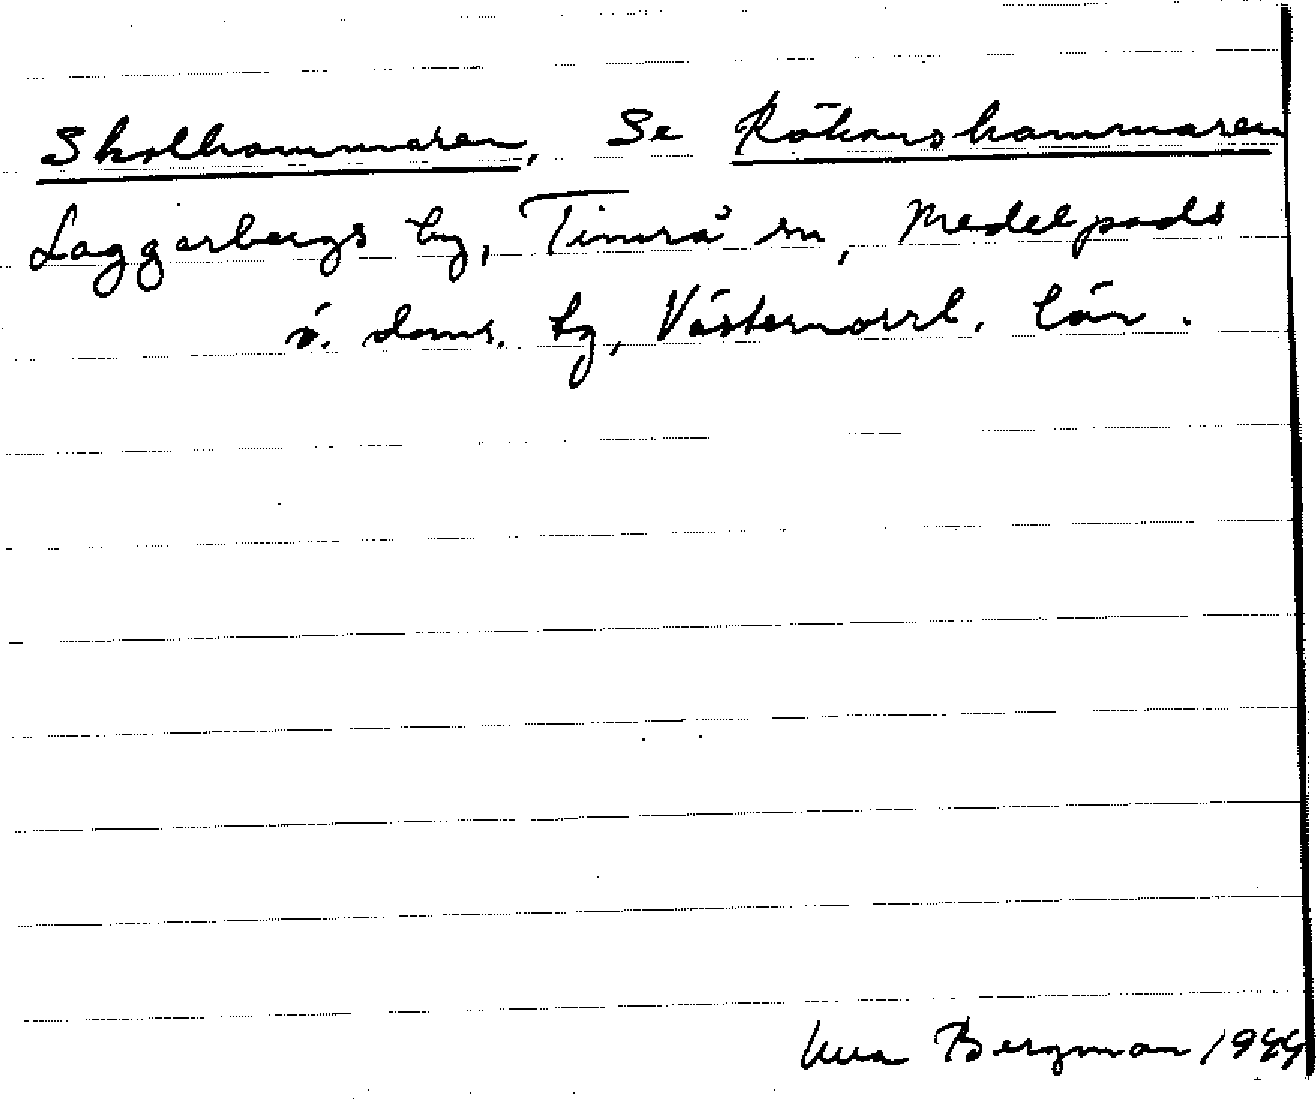 Skolhammaren, Se Rökarshammaren
Laggarbergs by, Timrå sn, Medelpads
v. doms. tg, Västernorrl. län.
Bergman 1944